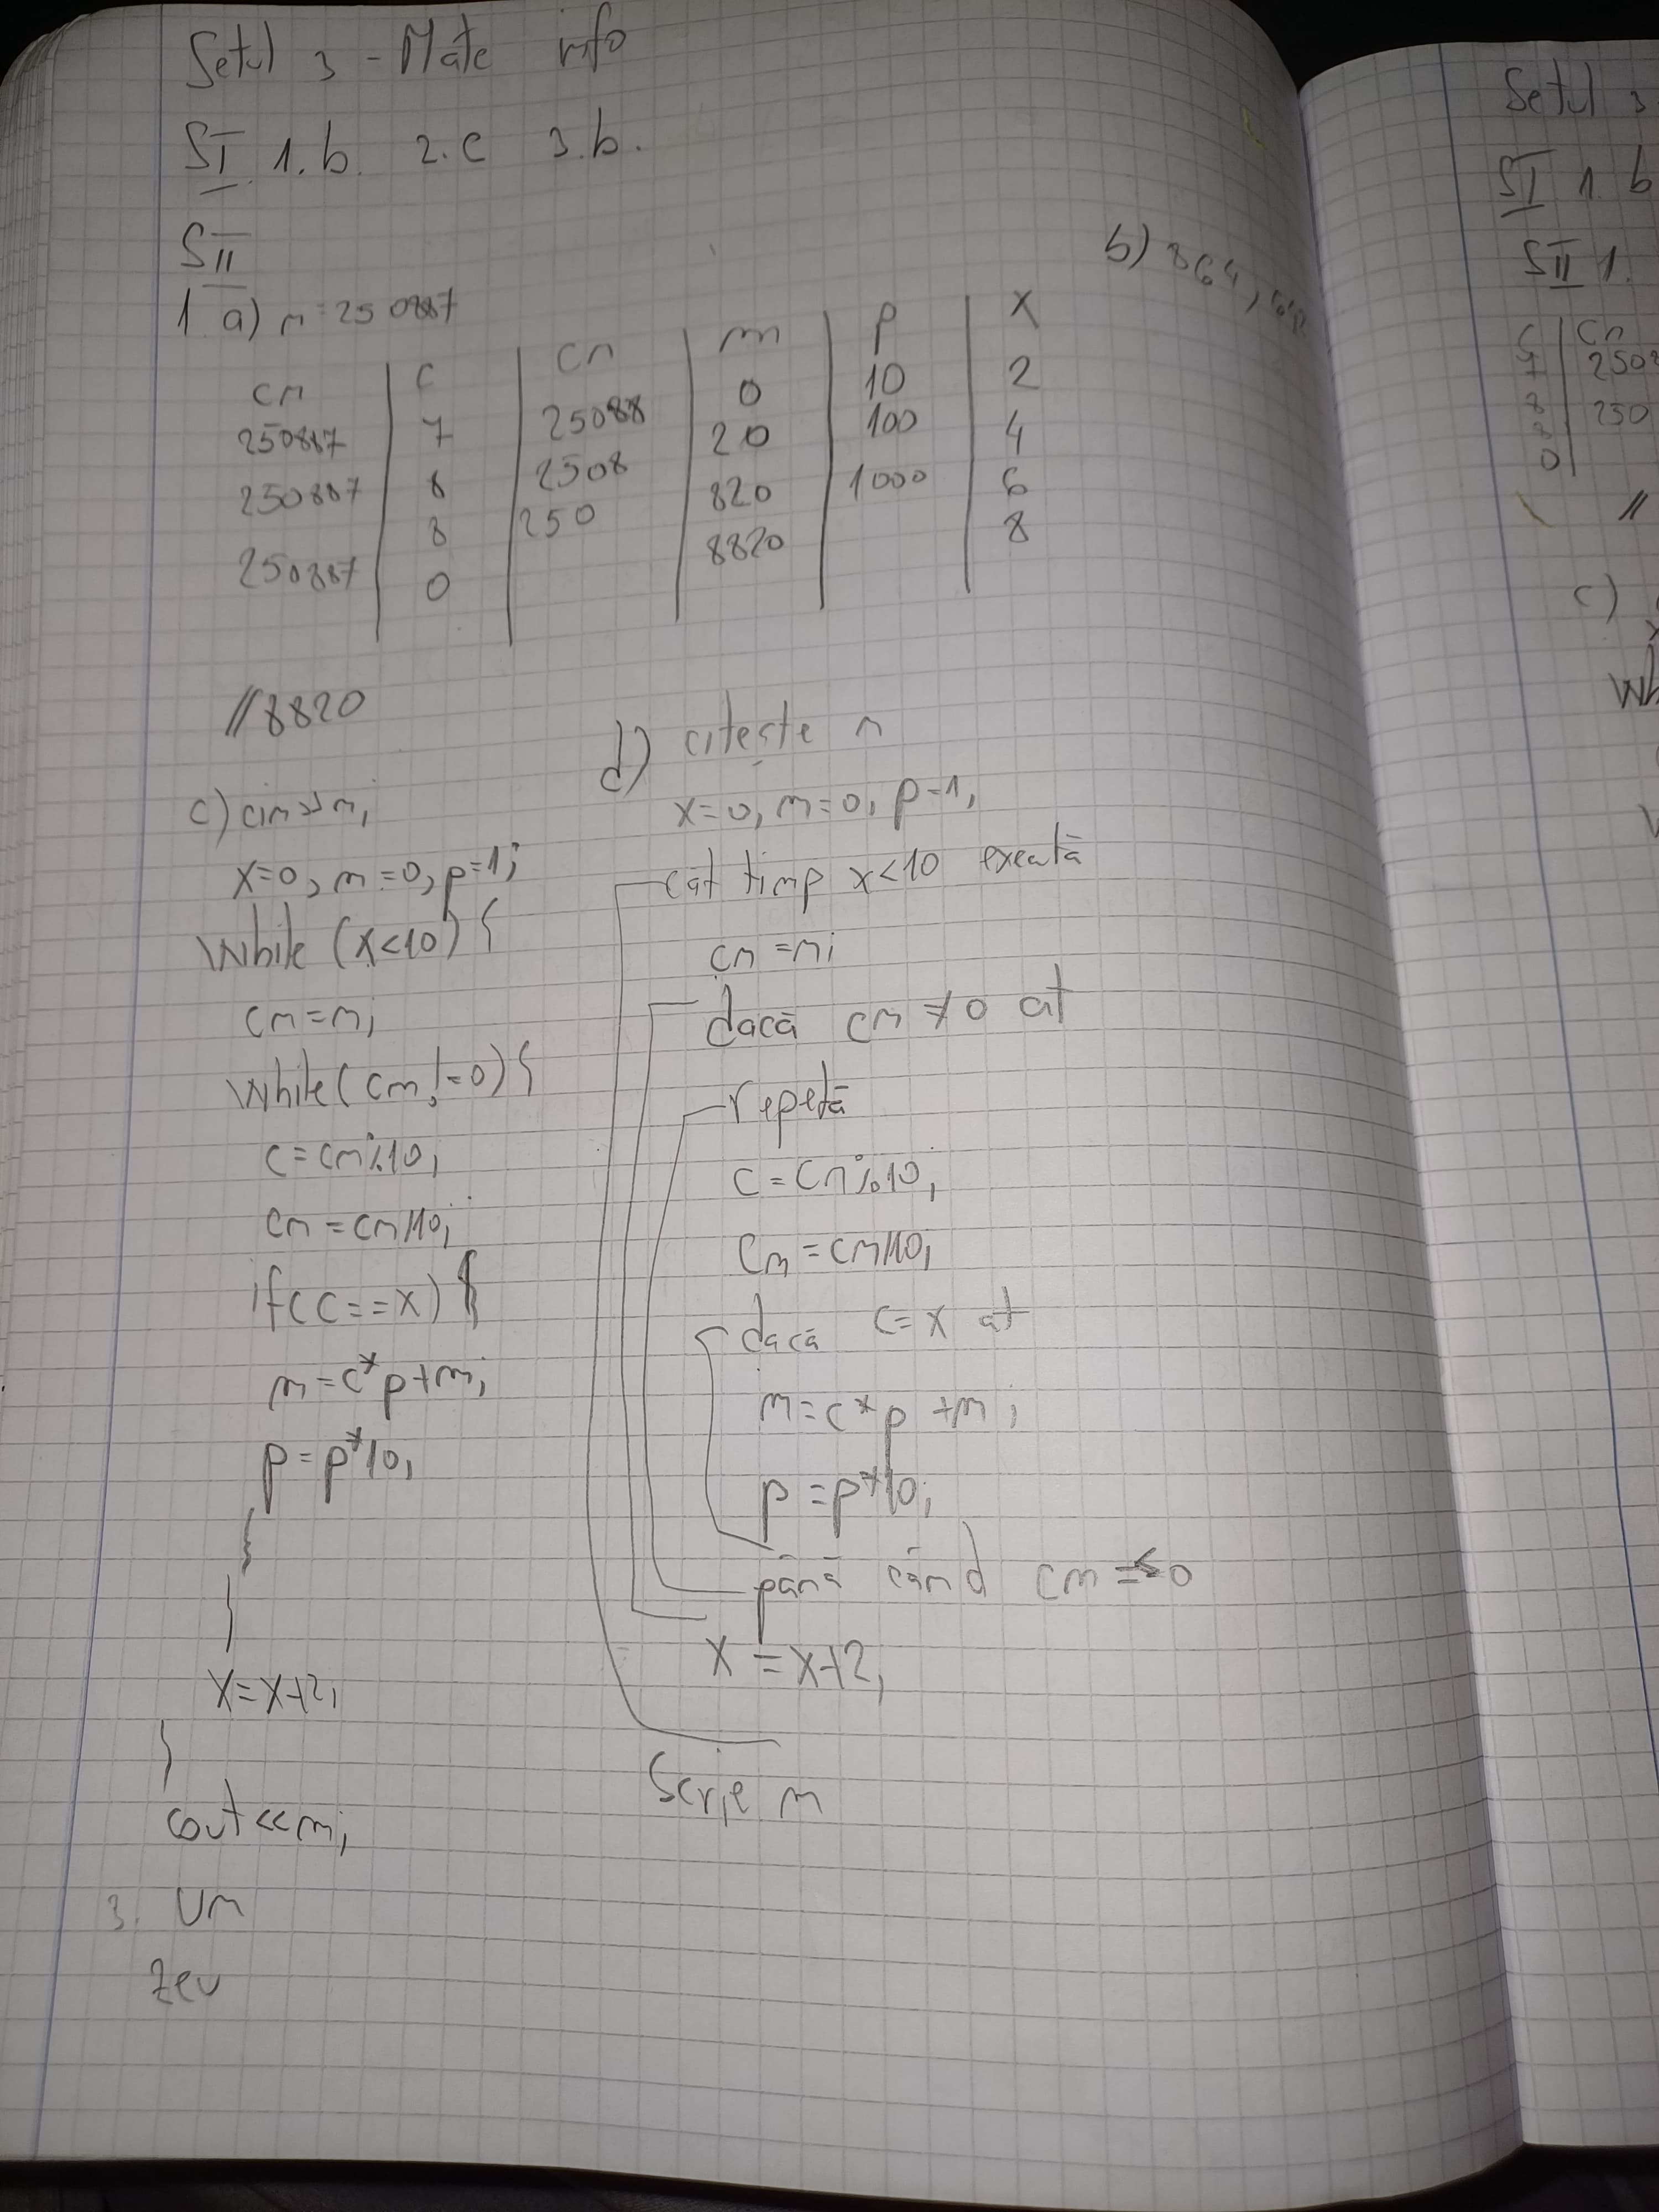 Setul 3 - Mate info
SI 1.b. 2.c 3.b.
SII
1. a) n=250887
b) 864,
cn | c | cn | m | p | x
250887 | 7 | 25088 | 0 | 10 | 2
250887 | 8 | 2508 | 20 | 100 | 4
8 | 250 | 820 | 1000 | 6
250887 | 0 | 8820 | 8
//8820
c) cin>>n;
x=0, m=0, p=1;
while (x<10) {
cn=n;
while(cn!=0){
c=cn%10;
cn=cn/10;
if(c==x) {
m=c*p+m;
p=p*10;
}
}
x=x+2;
}
cout<<m;
d) citește n
x=0, m=0, p=1;
cât timp x<10 execută
cn=n;
dacă cn≠0 at
repetă
c=cn%10;
cn=cn/10;
dacă c=x at
m=c*p+m;
p=p*10;
până când cn=0
x=x+2;
Scrie m
3. un
zeu
Setul 3
SI 1. b
SII 1.
c | cn
7 | 2508
8 | 250
8
0
//
c)
x
wh